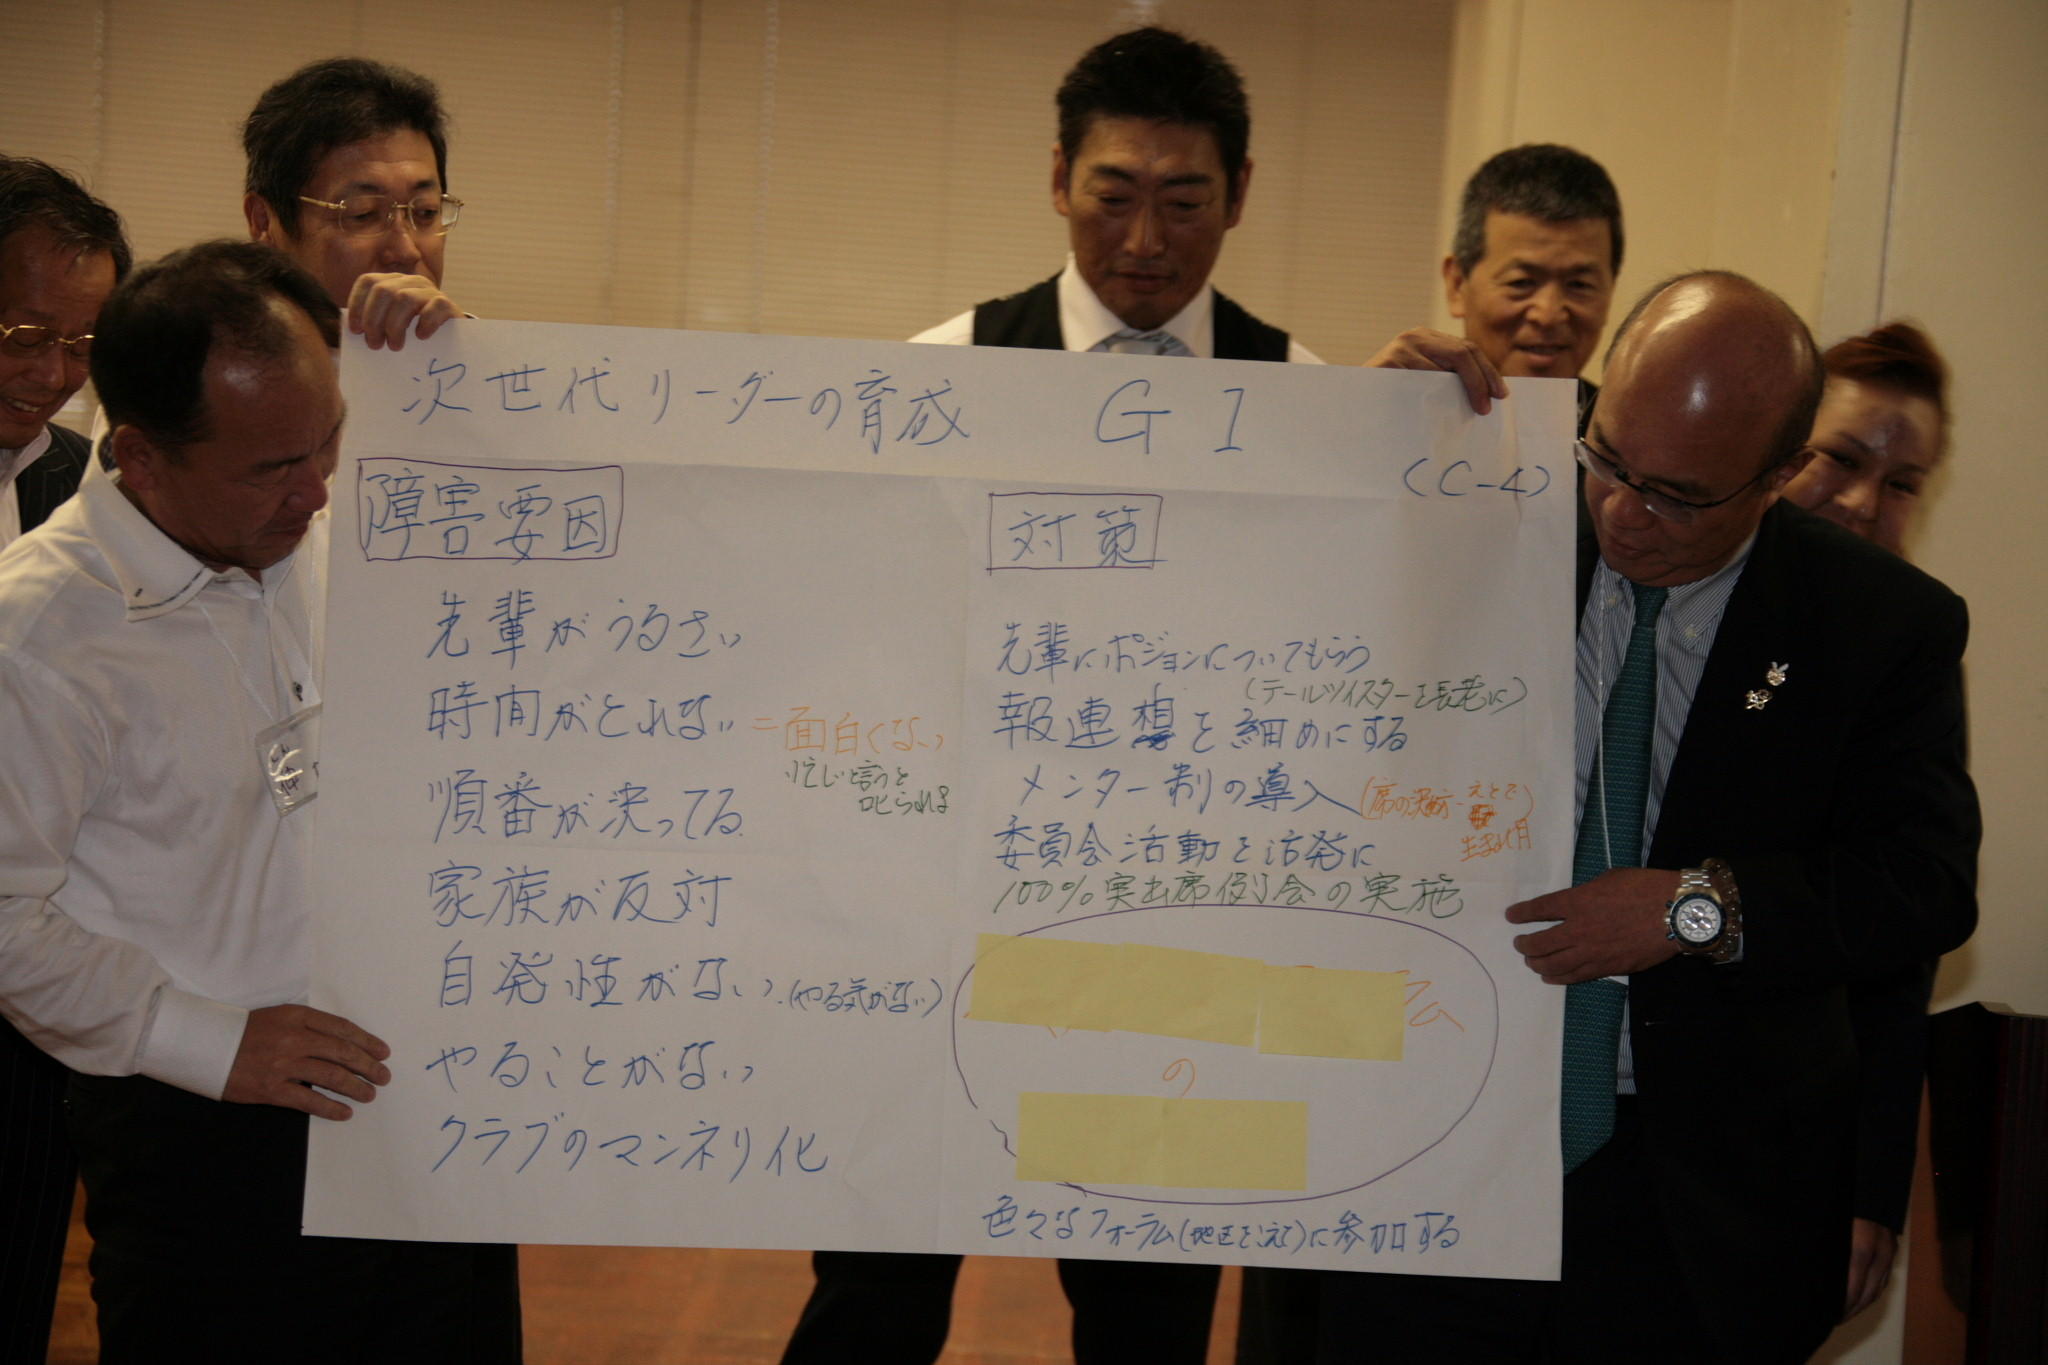 次世代リーダーの育成 G1
(C-4)
障害要因
先輩がうるさい
時間がとれない =面白くない
忙しいと言うと
叱られる
順番が決ってる
家族が反対
自発性がない.(やる気がない)
やることがない
クラブのマンネリ化
対策
先輩にポジションについてもらう
(テールツイスターを長老に)
報連想を細めにする
メンター制の導入
(席の決め方-えとで
生まれ月
委員会活動を活発に
100%実出席例会の実施
ム
の
色々なフォーラム(地区をこえて)に参加する